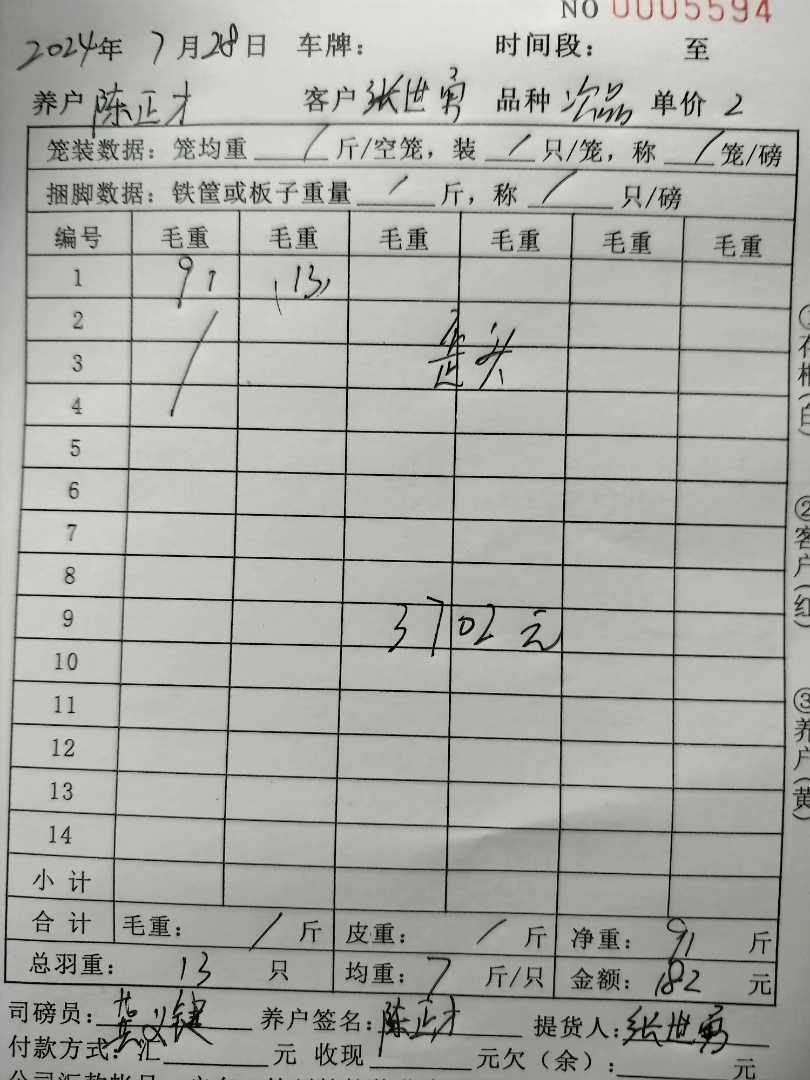 NO 0005594
2024年 7月28日 车牌： 时间段： 至
养户 陈正才 客户 张世勇 品种 次品 单价 2
笼装数据：笼均重 / 斤/空笼，装 / 只/笼，称 / 笼/磅
捆脚数据：铁筐或板子重量 / 斤，称 / 只/磅
编号 毛重 毛重 毛重 毛重 毛重 毛重
1 91 (13)
2
3 歪头
4
5
6
7
8
9 3702元
10
11
12
13
14
小计
合计 毛重： / 斤 皮重： / 斤 净重： 91 斤
总羽重： 13 只 均重： 7 斤/只 金额： 182 元
司磅员： 养户签名：陈正才 提货人：张世勇
付款方式：汇 元 收现 元欠（余）： 元
②客户（红）
③养户（黄）